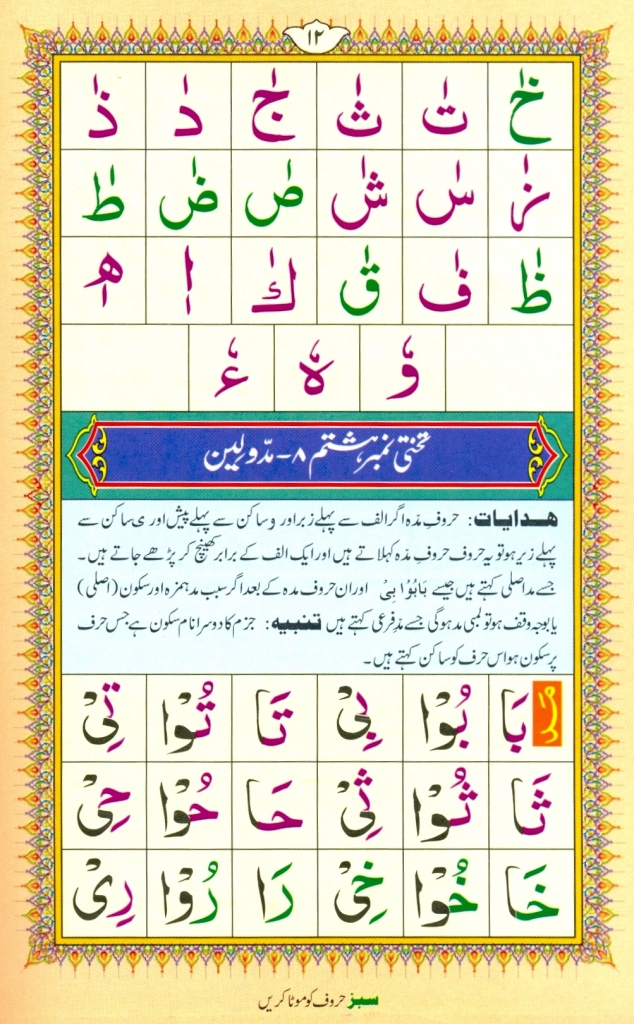 ١٢
خٰ تٰ ثٰ جٰ دٰ ذٰ
زٰ سٰ شٰ صٰ ضٰ طٰ
ظٰ فٰ قٰ كٰ اٖ هٖ
وٗ هٗ ءٗ
تختی نمبر ہشتم ۸ - مدّ و لین
ھدایات: حروفِ مدہ اگر الف سے پہلے زبر اور و ساکن سے پہلے پیش اور ی ساکن سے
پہلے زیر ہو تو یہ حروف حروفِ مدہ کہلاتے ہیں اور ایک الف کے برابر کھینچ کر پڑھے جاتے ہیں۔
جسے مد اصلی کہتے ہیں جیسے بَابُوْا بِیْ اور ان حروف مدہ کے بعد اگر سبب مد ہمزہ اور سکون (اصلی)
یا بوجہ وقف ہو تو لمبی مد ہوگی جسے مدِ فرعی کہتے ہیں تنبیہ: جزم کا دوسرا نام سکون ہے جس حرف
پر سکون ہو اس حرف کو ساکن کہتے ہیں۔
مَدّ بَا بُوْا بِیْ تَا تُوْا تِیْ
ثَا ثُوْا ثِیْ حَا حُوْا حِیْ
خَا خُوْا خِیْ رَا رُوْا رِیْ
سبز حروف کو موٹا کریں